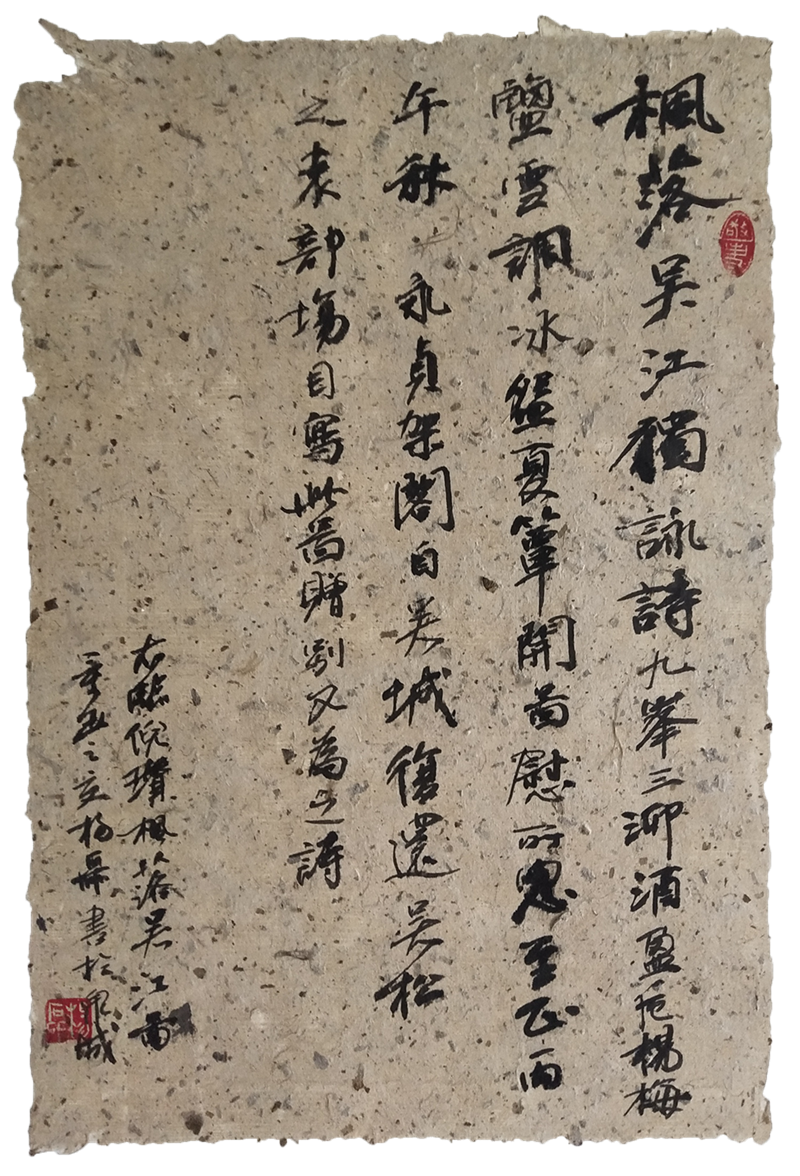 楓落吳江獨詠詩九峯三泖酒盈卮楊梅
鹽雪調冰盌夏簟開圖慰所思至正丙
午秋永貞架閣自吳城復還吳松
之表部場因寫此圖贈別又為之詩
右臨倪瓚楓落吳江圖
之立楊昇書於泉城
敬事